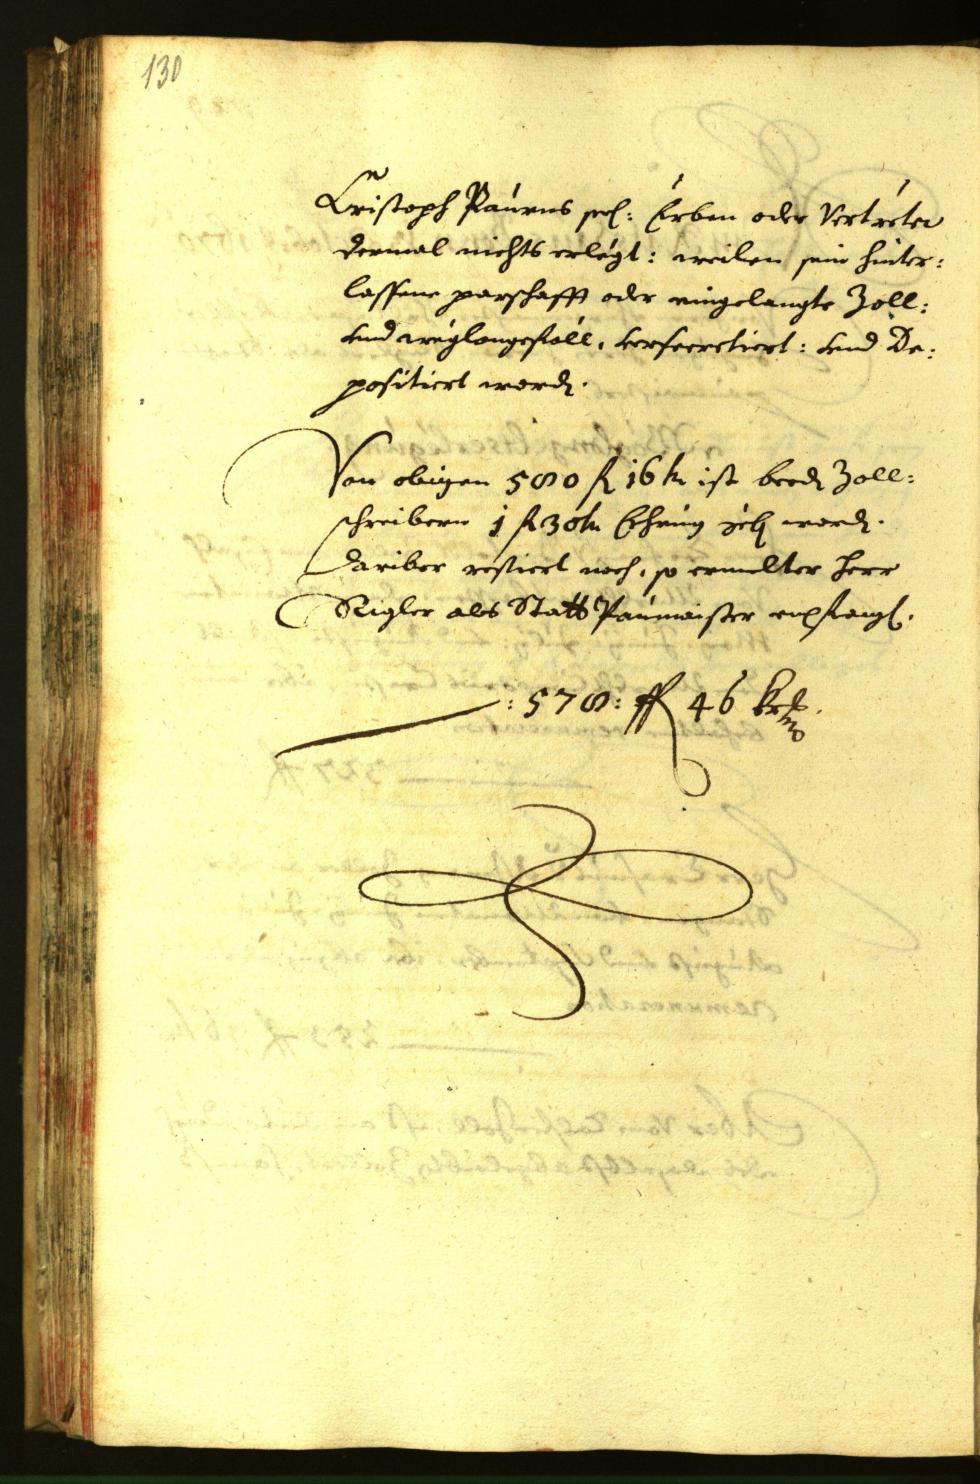 130
Cristoph Paurns sel: Erben oder Vertreter
dermal nichts erlegt: weilen sein hinter:
lassene parschafft oder eingelangte Zoll:
und weglongeföll, versecretiert: und De:
positiert word.
Von obigen 580 fl 16 kr ist beed Zoll:
schreibern 1 fl 30 kr Ehrung word.
dariber restiert noch, so ermelter herr
Rigler als Statt Paumaister empfangt.
: 578: fl 46 kr